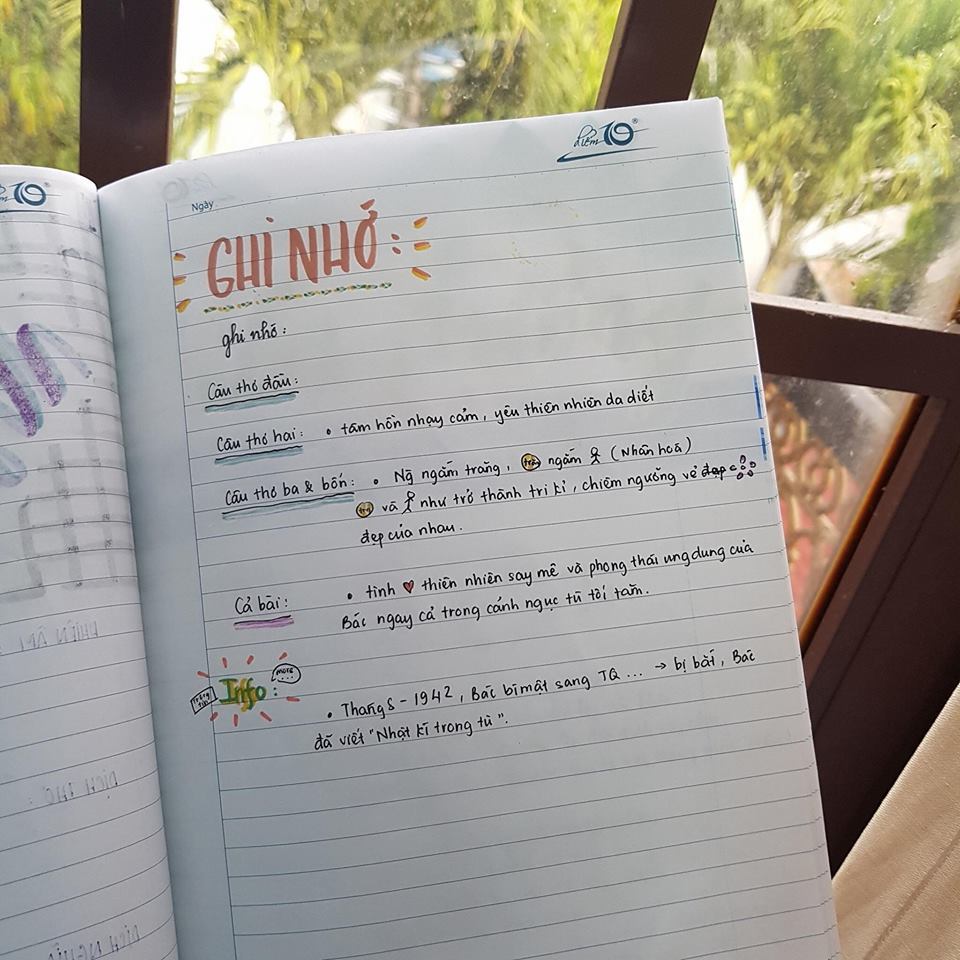 điểm 10
Ngày
GHI NHỚ :
ghi nhớ :
Câu thơ đầu :
Câu thơ hai : • tâm hồn nhạy cảm, yêu thiên nhiên da diết
Câu thơ ba & bốn : • Ng̃ ngắm trăng, trăng ngắm (nhân hoá)
và như trở thành tri kỉ, chiêm ngưỡng vẻ đẹp
đẹp của nhau.
Cả bài : • tình thiên nhiên say mê và phong thái ung dung của
Bác ngay cả trong cảnh ngục tù tối tăm.
more...
thông tin
Info :
• Tháng 8 - 1942, Bác bí mật sang TQ ... → bị bắt, Bác
đã viết "Nhật kí trong tù".